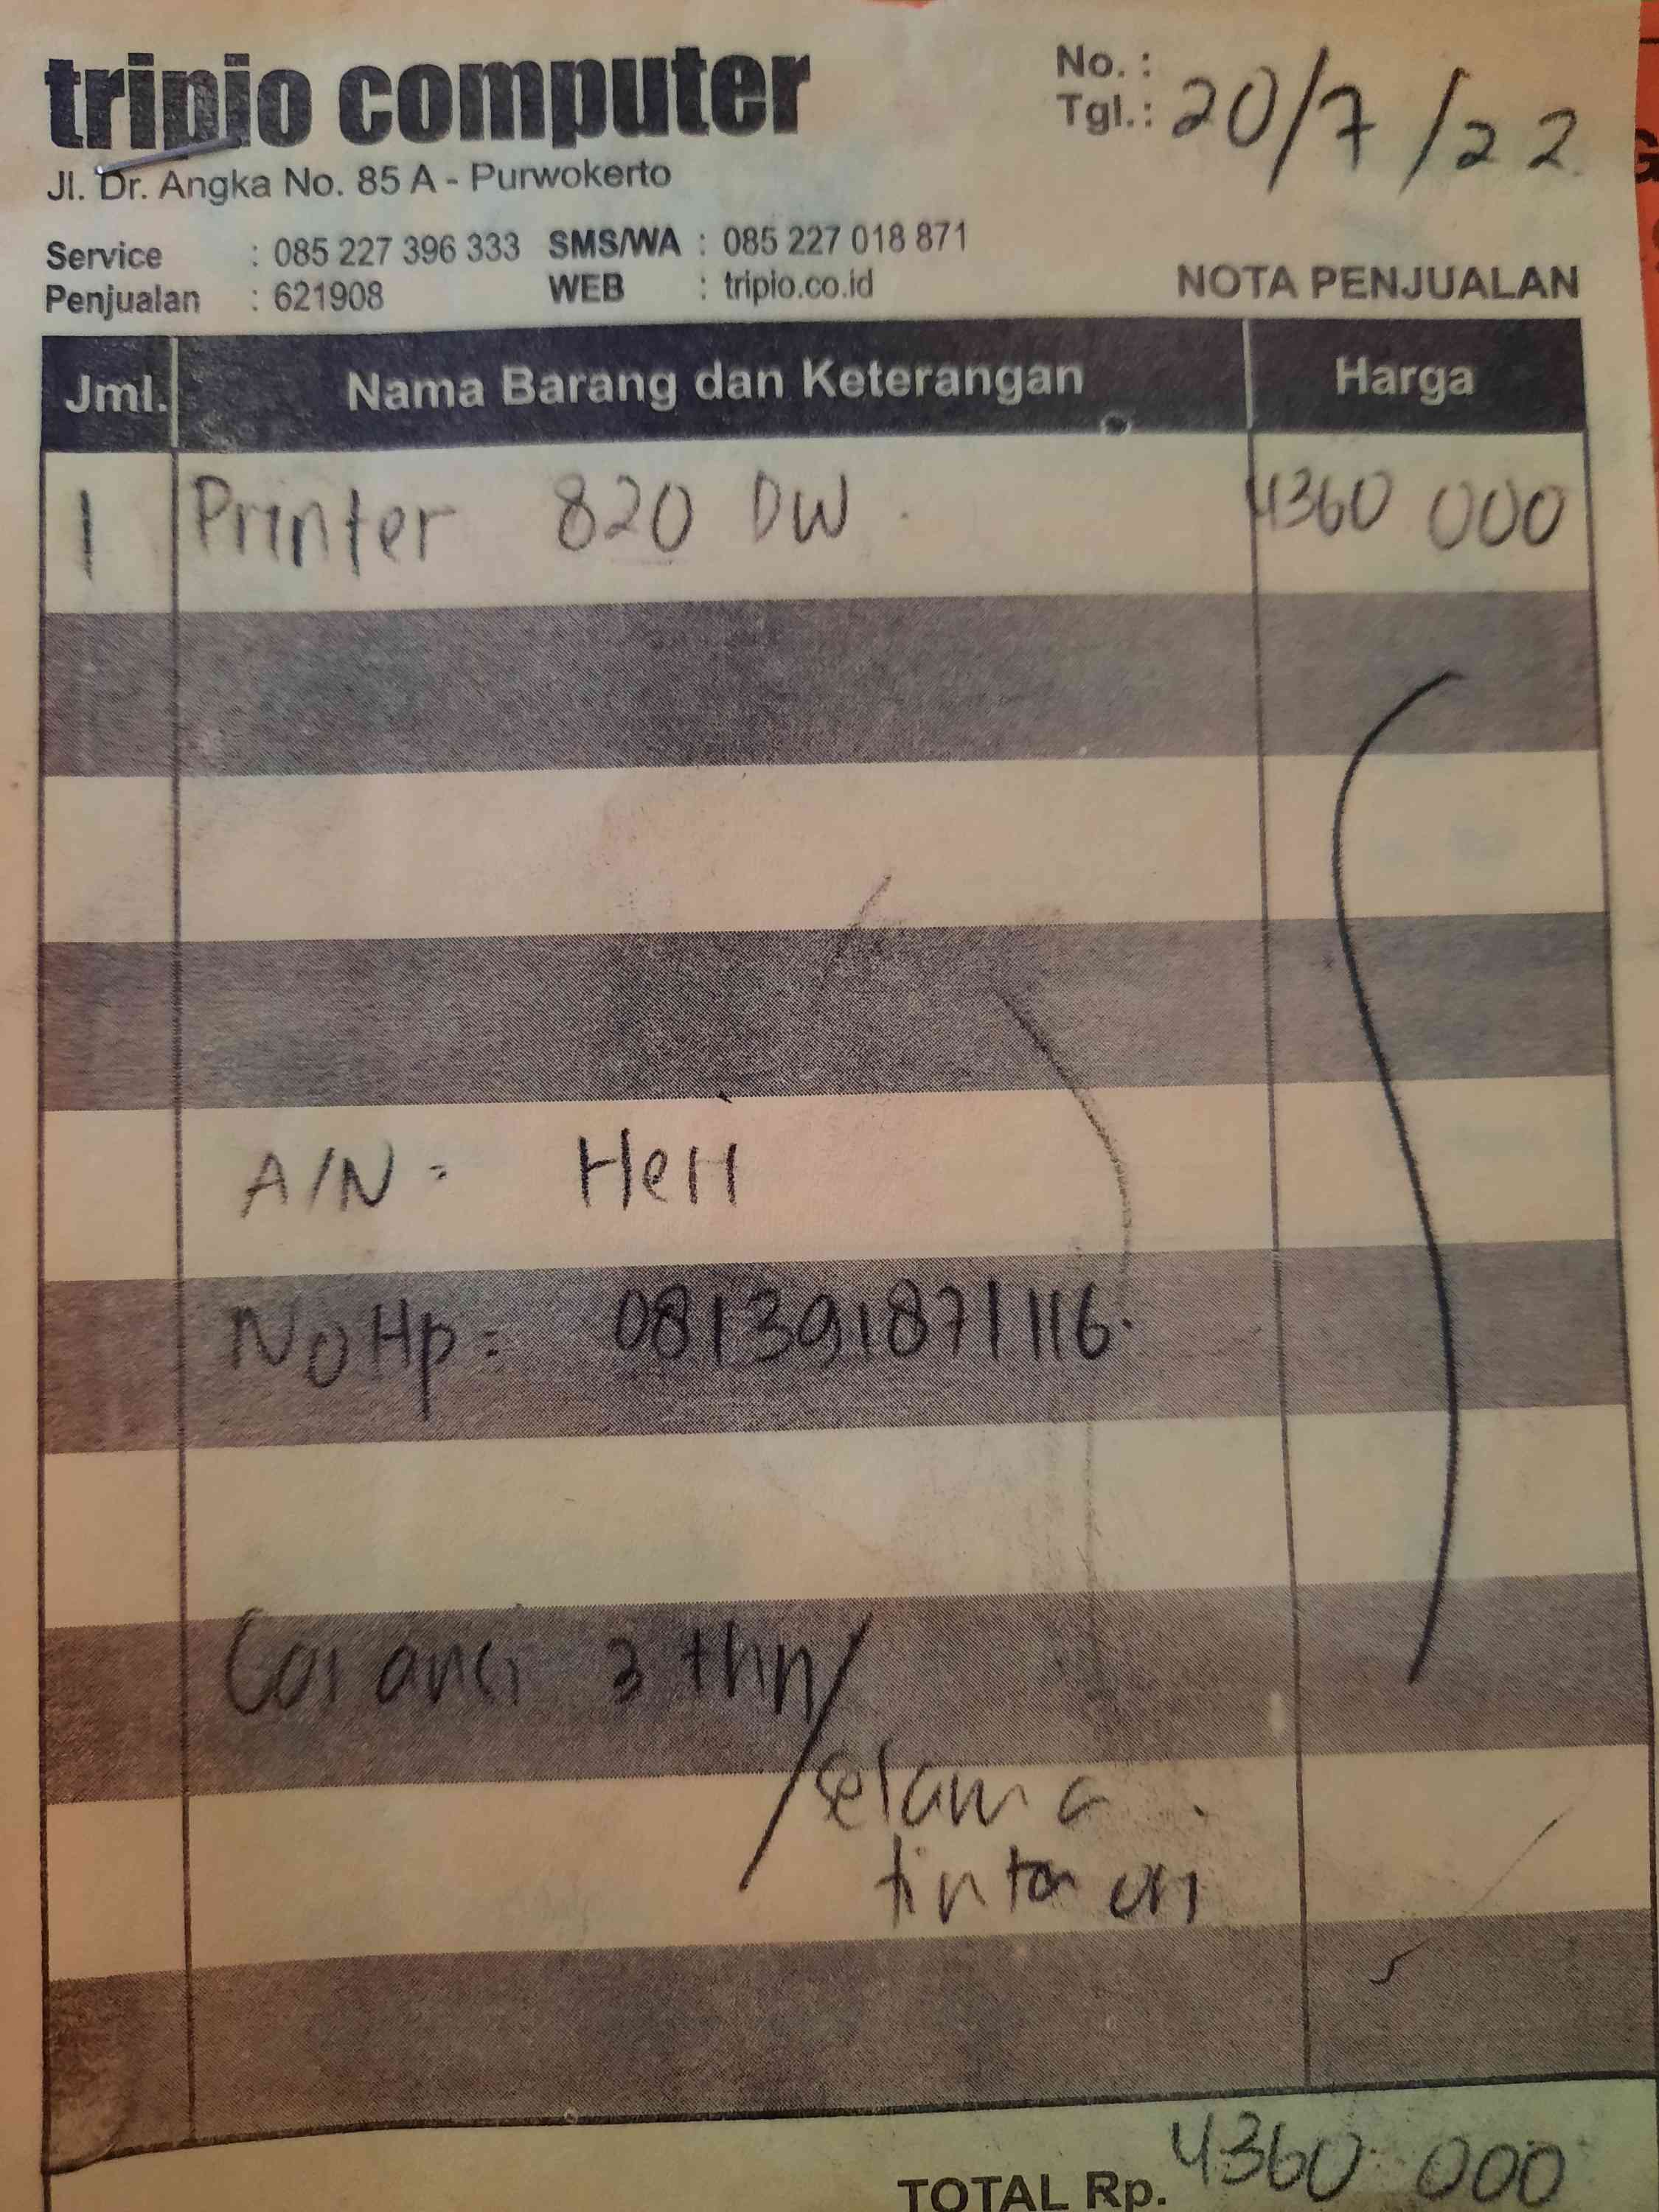 tripio computer
No. :
Tgl.: 20/7/22
Jl. Dr. Angka No. 85 A - Purwokerto
Service : 085 227 396 333 SMS/WA : 085 227 018 871
Penjualan : 621908 WEB : tripio.co.id
NOTA PENJUALAN
Jml. Nama Barang dan Keterangan Harga
1 Printer 820 DW 4360 000
A/N = Heri
No Hp = 081391871116.
Garansi 3 thn/
selama
tinta ori
TOTAL Rp. 4360 000